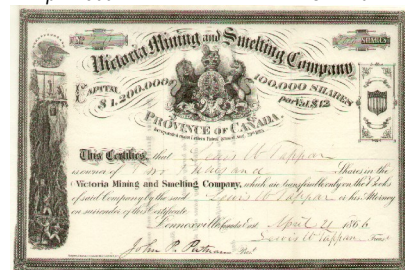 Victoria Mining and Smelting Company
CAPITAL $1,200,000
100,000 SHARES par Val. $12
PROVINCE OF CANADA.
This Certifies, that Lewis W Tappan
is owner of Shares in the
Victoria Mining and Smelting Company, which are transferable only on the Books
of said Company by the said Lewis W Tappan or his Attorney
on surrender of this Certificate
Lennoxville Canada East April 21 1866
John P. Putnam Pres't
Lewis W Tappan Treas'r